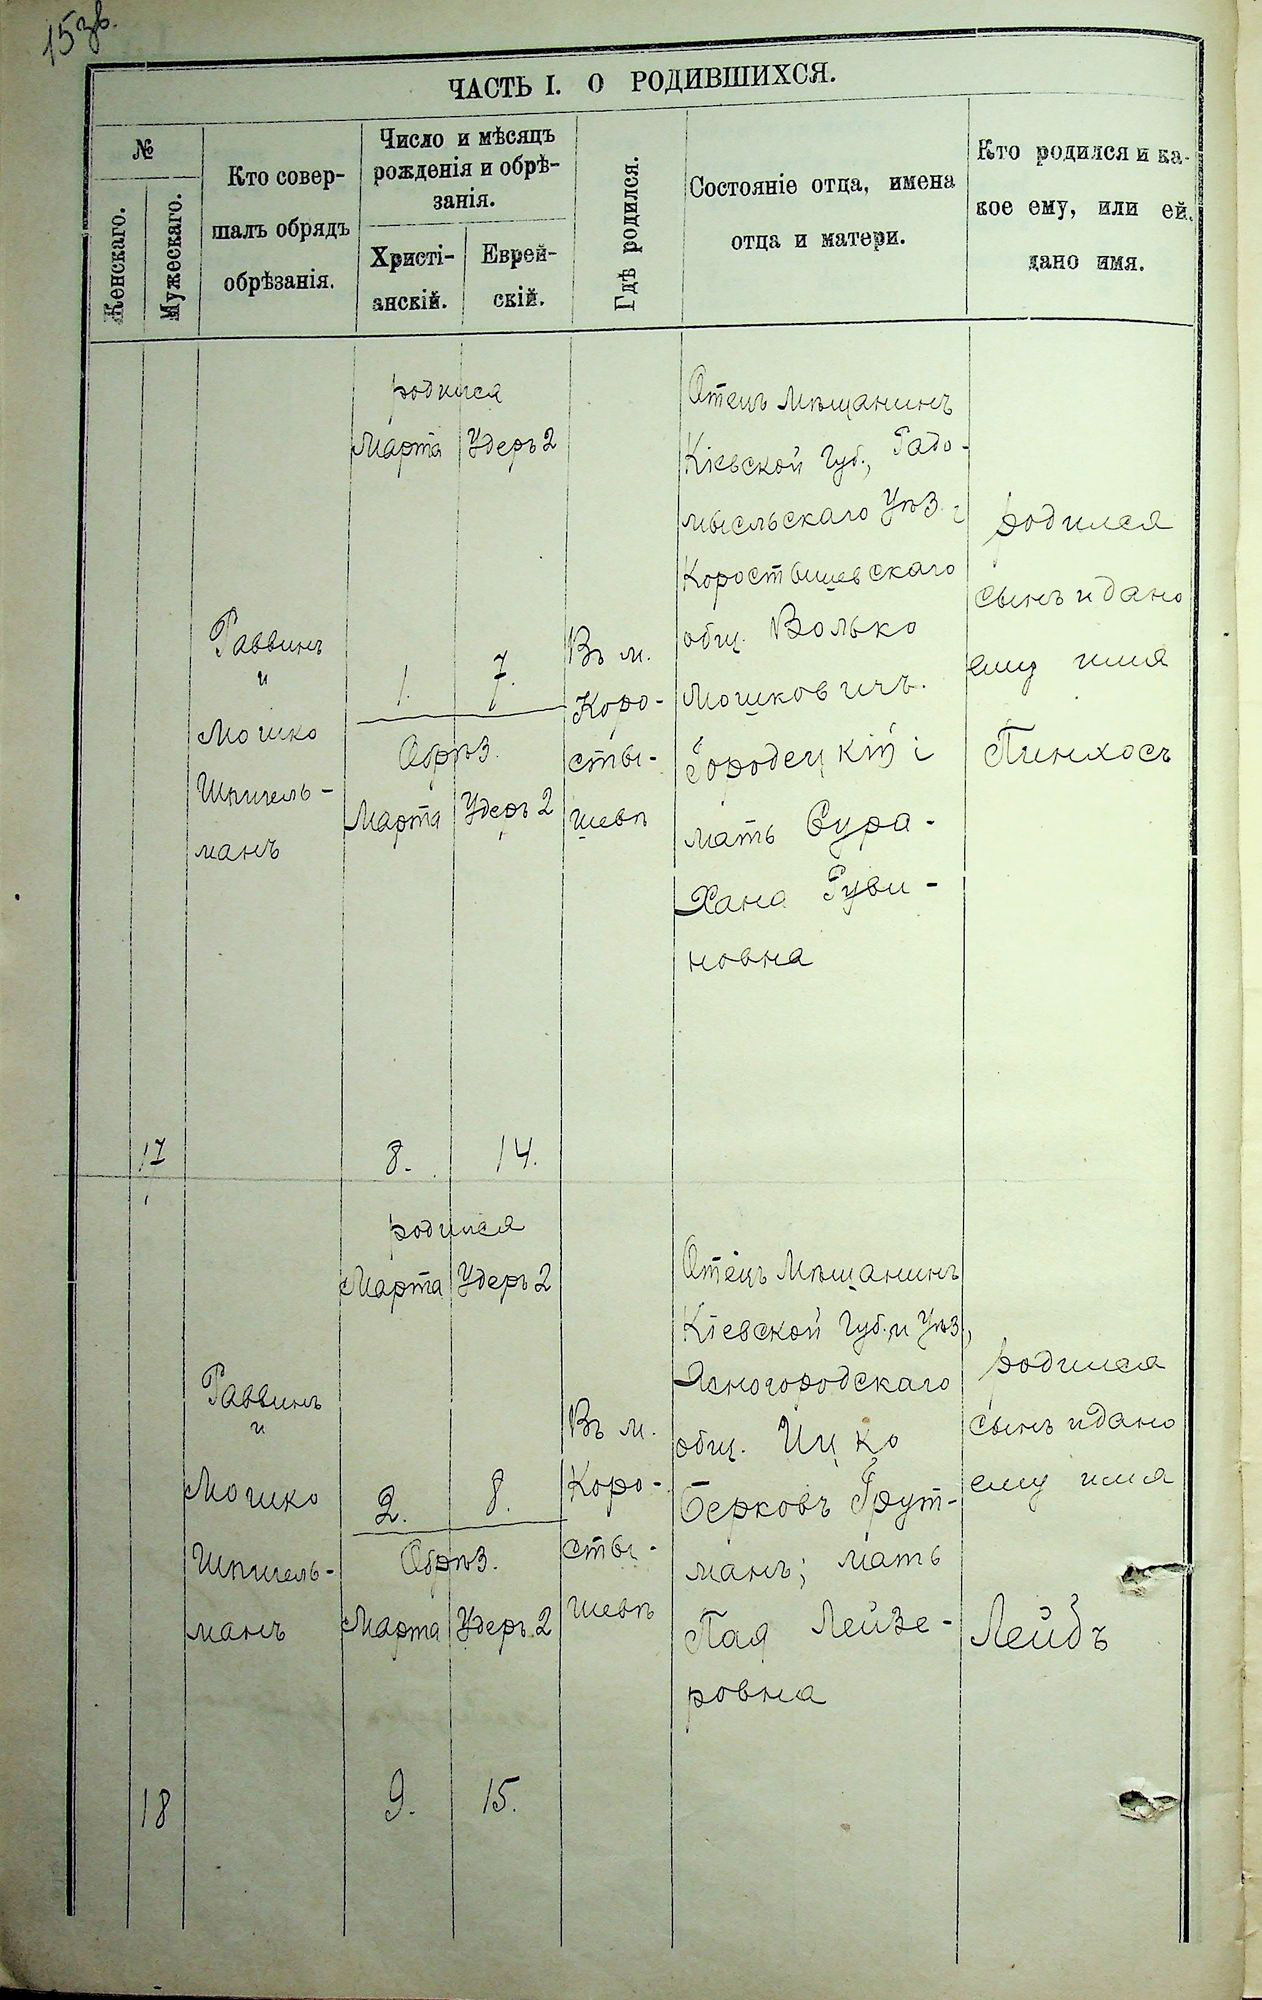 15 зв.
ЧАСТЬ I. О РОДИВШИХСЯ.
№
Женскаго.
Мужескаго.
Кто совер-
шалъ обрядъ
обрѣзанія.
Число и мѣсяцъ
рожденія и обрѣ-
занія.
Христі-
анскій.
Еврей-
скій.
Гдѣ родился.
Состояніе отца, имена
отца и матери.
Кто родился и ка-
кое ему, или ей,
дано имя.
17
Раввинъ
и
Мошко
Шпигель-
манъ
родился
Марта Удеръ 2
1. 7.
Обрѣз.
Марта Удеръ 2
8. 14.
Въ м.
Коро-
сты-
шевѣ
Отецъ Мѣщанинъ
Кіевской Губ., Радо-
мысльскаго Уѣз.
Коростышевскаго
общ. Волько
Мошковичъ.
Городецкій і
мать Сура-
Хана Руви-
новна
родился
сынъ и дано
ему имя
Пинхосъ
18
Раввинъ
и
Мошко
Шпигель-
манъ
родился
Марта Удеръ 2
2. 8.
Обрѣз.
Марта Удеръ 2
9. 15.
Въ м.
Коро-
сты-
шевѣ
Отецъ Мѣщанинъ
Кіевской Губ. и Уѣз.,
Ясногородскаго
общ. Ицко
Берковъ Грут-
манъ; мать
Пая Лейзе-
ровна
родился
сынъ и дано
ему имя
Лейбъ